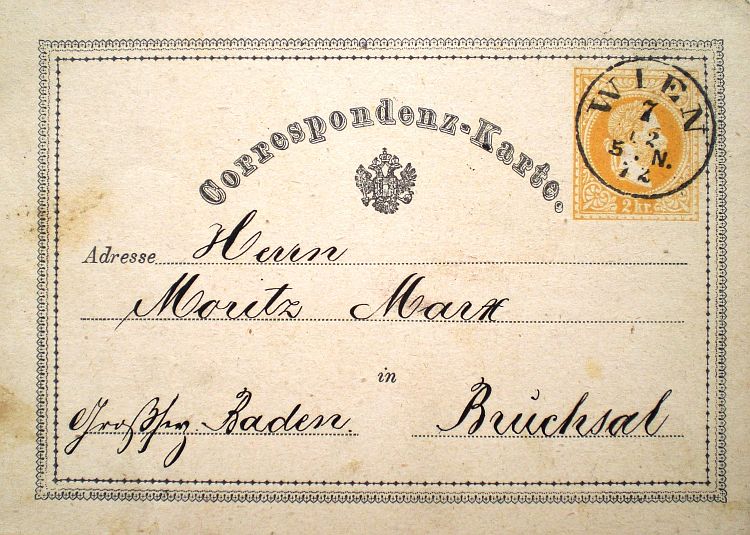 Correspondenz-Karte.
WIEN
7
12
5. N.
72
2 kr.
Adresse Herrn
Moritz Marx
in
Großhzg. Baden. Bruchsal